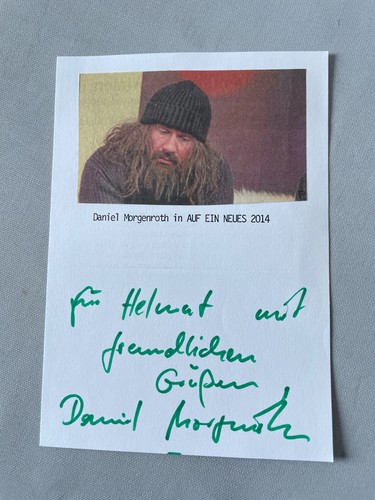 Daniel Morgenroth in AUF EIN NEUES 2014
für Helmut mit
freundlichen
Grüßen
Daniel Morgenroth